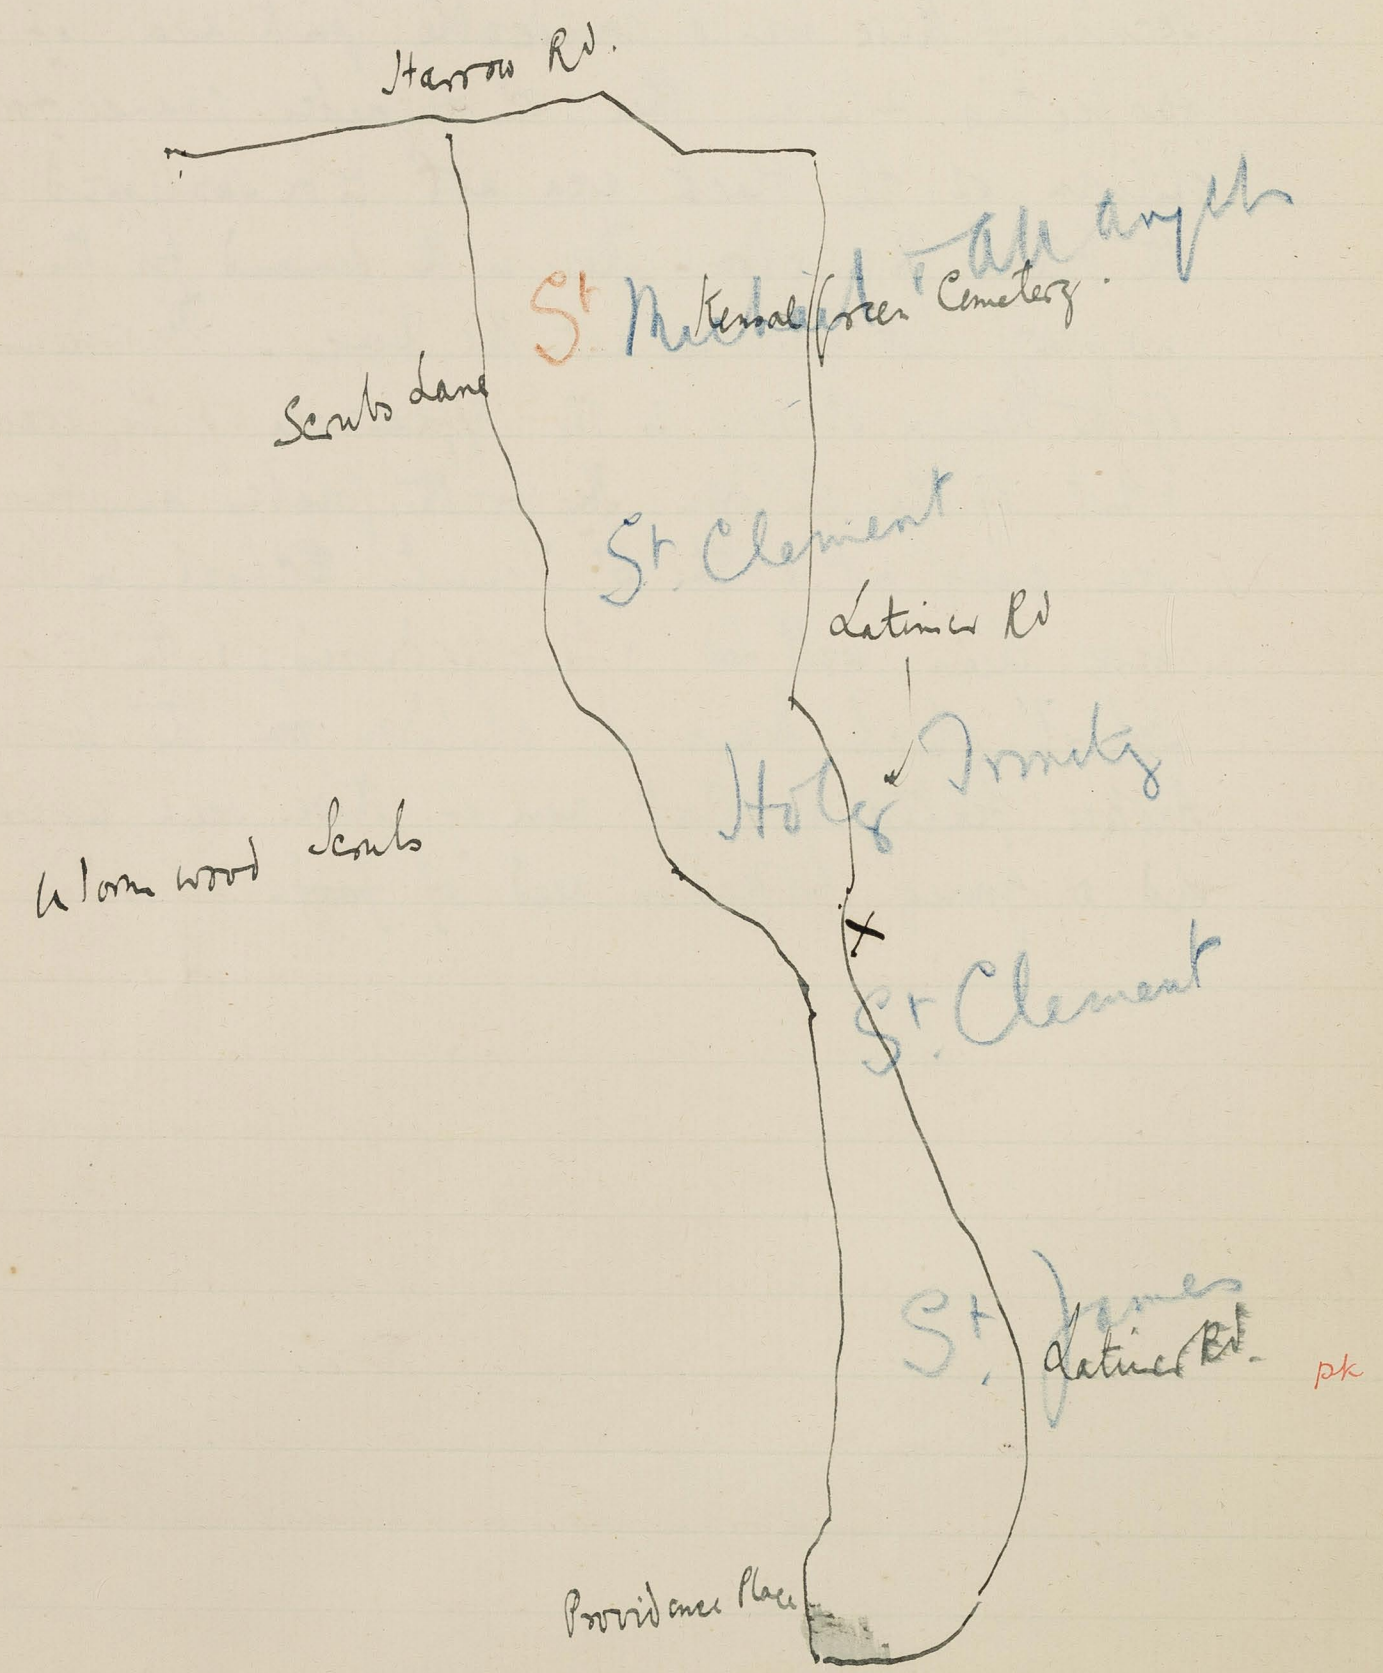 Harrow Rd.
St Michael & All Angels
Kensal Green Cemetery.
Scrubs Lane
St. Clement
Latimer Rd
Holy Trinity
Wormwood Scrubs
X
St. Clement
St. James
Latimer Rd.
pk
Providence Place